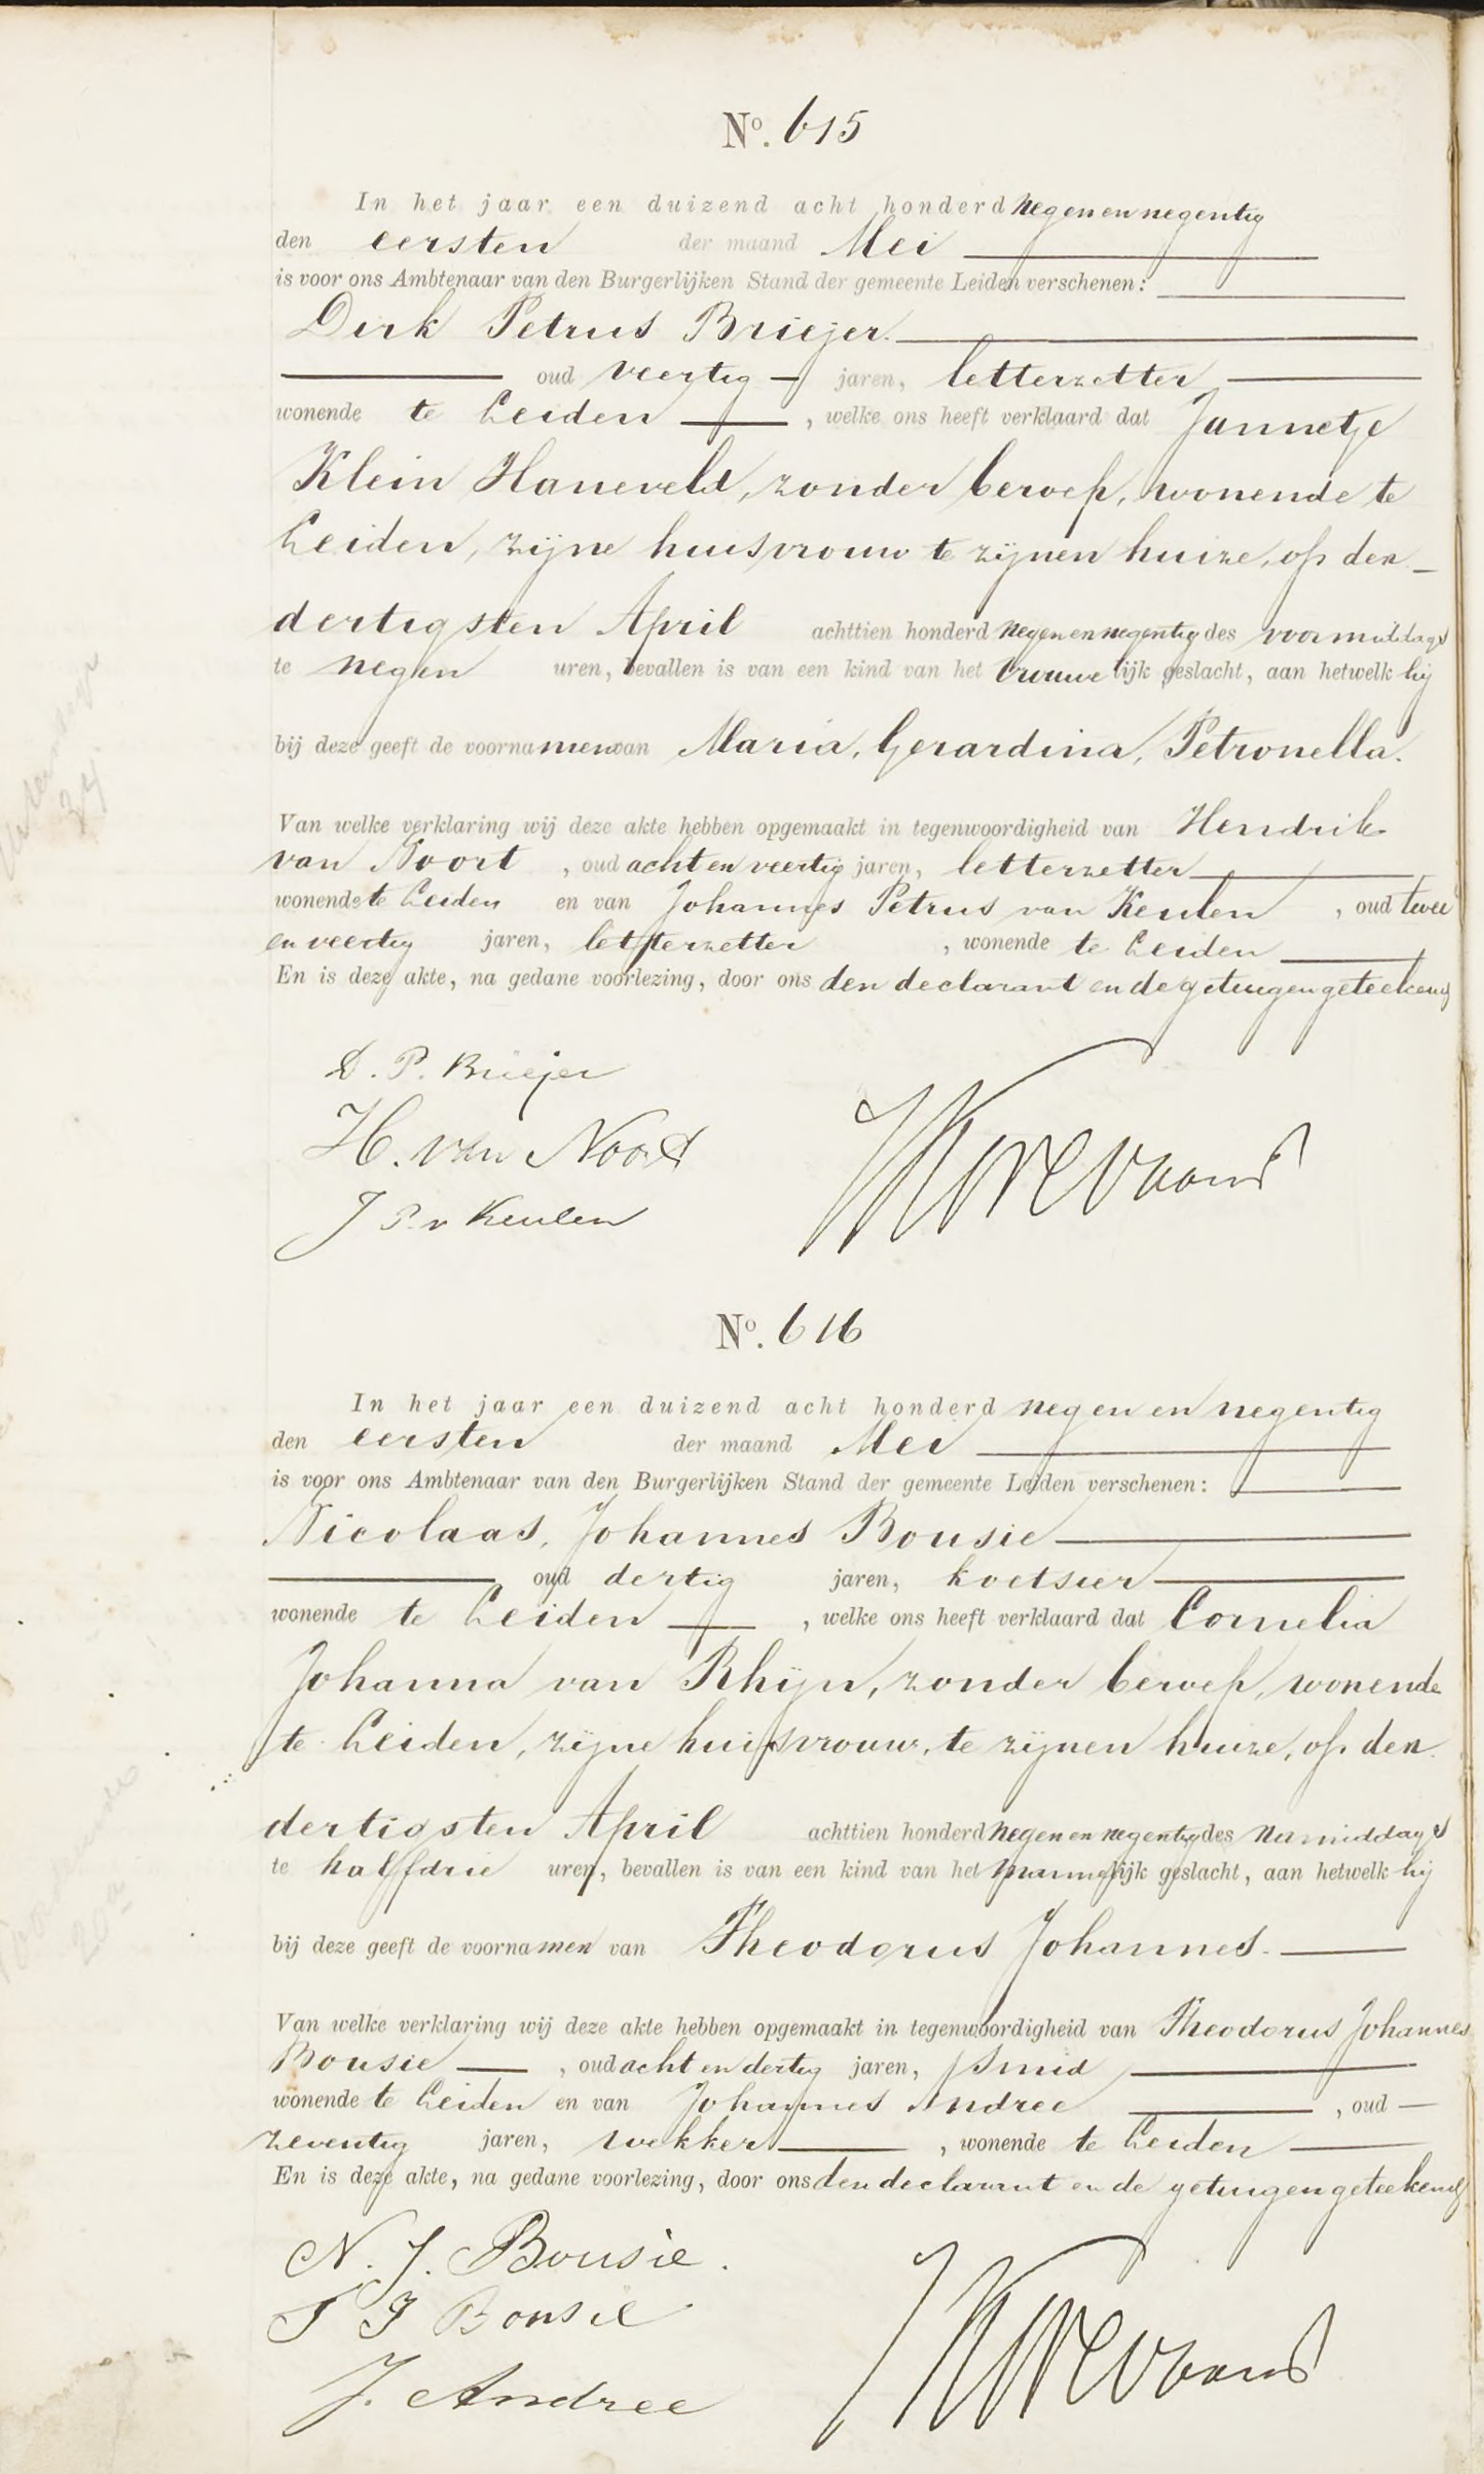 No. 615
In het jaar een duizend acht honderd negen en negentig
den eersten der maand Mei
is voor ons Ambtenaar van den Burgerlijken Stand der gemeente Leiden verschenen:
Dirk Petrus Briejer.
oud veertig jaren, letterzetter
wonende te Leiden, welke ons heeft verklaard dat Jannetje
Klein Haneveld, zonder beroep, wonende te
Leiden, zijne huisvrouw te zijnen huize, op den
dertigsten April achttien honderd negen en negentig des voormiddags
te negen uren, bevallen is van een kind van het vrouwelijk geslacht, aan hetwelk hij
bij deze geeft de voornamen van Maria, Gerardina, Petronella.
Van welke verklaring wij deze akte hebben opgemaakt in tegenwoordigheid van Hendrik
van Noort, oud acht en veertig jaren, letterzetter
wonende te Leiden en van Johannes Petrus van Keulen, oud twee
en veertig jaren, letterzetter, wonende te Leiden
En is deze akte, na gedane voorlezing, door ons den declarant en de getuigen geteekend
D. P. Briejer
H. van Noort
J P. v Keulen
No. 616
In het jaar een duizend acht honderd negen en negentig
den eersten der maand Mei
is voor ons Ambtenaar van den Burgerlijken Stand der gemeente Leiden verschenen:
Nicolaas, Johannes Bousie
oud dertig jaren, koetsier
wonende te Leiden, welke ons heeft verklaard dat Cornelia
Johanna van Rhijn, zonder beroep, wonende
te Leiden, zijne huisvrouw, te zijnen huize, op den
dertigsten April achttien honderd negen en negentig des namiddags
te half drie uren, bevallen is van een kind van het mannelijk geslacht, aan hetwelk hij
bij deze geeft de voornamen van Theodorus Johannes.
Van welke verklaring wij deze akte hebben opgemaakt in tegenwoordigheid van Theodorus Johannes
Bousie, oud acht en dertig jaren, smid
wonende te Leiden en van Johannes Andree, oud
zeventig jaren, wekker, wonende te Leiden
En is deze akte, na gedane voorlezing, door ons den declarant en de getuigen geteekend
N. J. Bousie.
T J Bousie
J. Andree